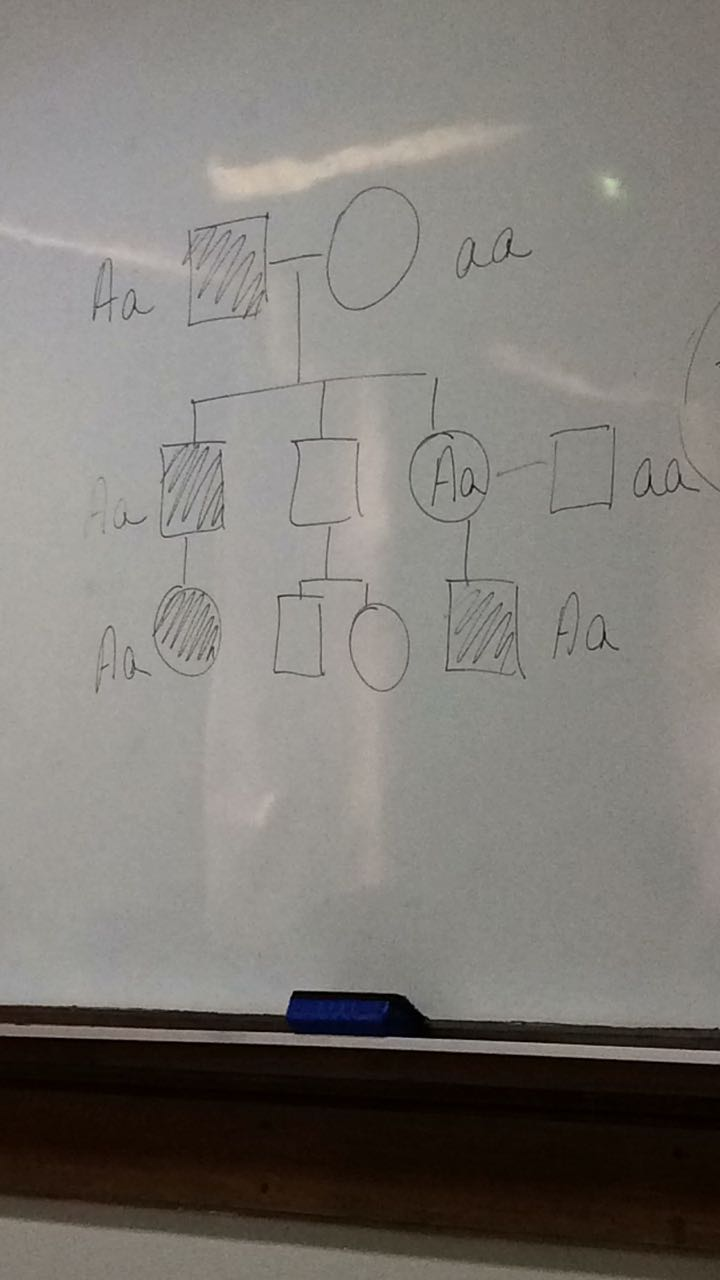 Aa aa
Aa Aa aa
Aa Aa